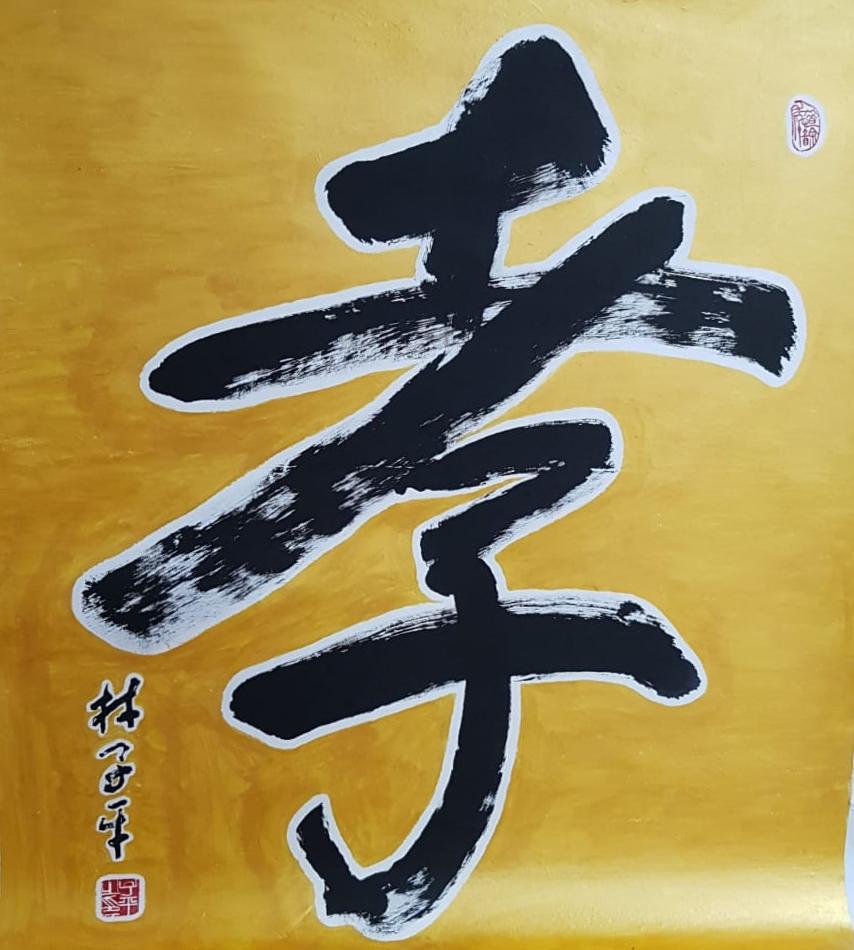 孝
林子平